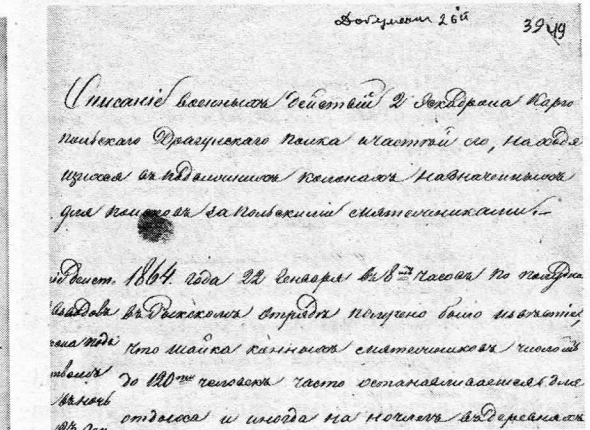 Документ 26й
39 49
Описаніе военныхъ действій 2 Эскадрона Карго
польскаго Драгунскаго полка и частей его, находя
щихся въ подвижныхъ колонахъ назначенныхъ
для поисковъ за польскими мятежниками.
1864. года 22 Генваря въ 8 часовъ по полудни
въ отрядѣ получено было извѣстіе,
что шайка конныхъ мятежниковъ числомъ
до 120ти человекъ часто останавливается для
отдыха и иногда на ночлегъ въ деревняхъ